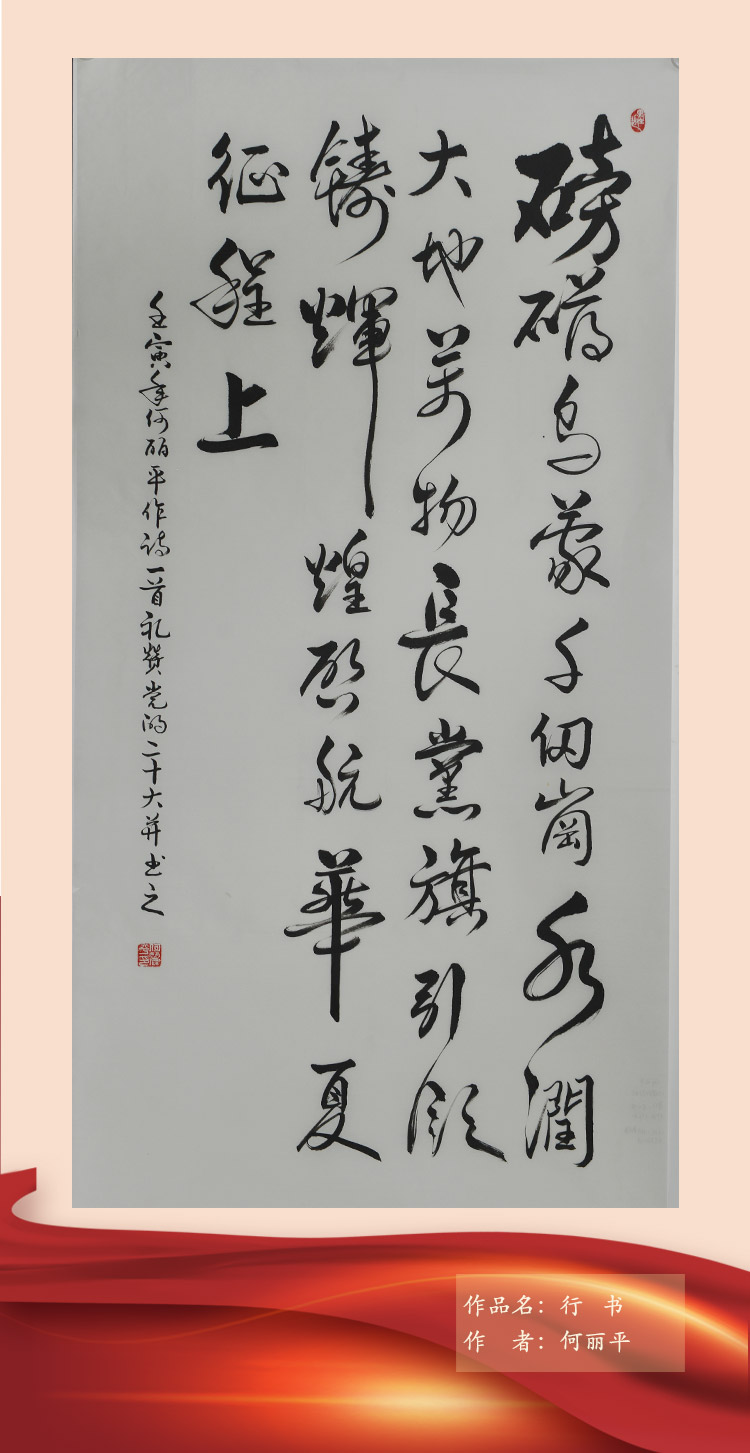 磅礴乌蒙千仞崗水潤
大地万物長黨旗引领
鑄輝煌啟航華夏
征程上
壬寅年何丽平作诗一首礼赞党的二十大并书之
作品名：行 书
作 者：何丽平